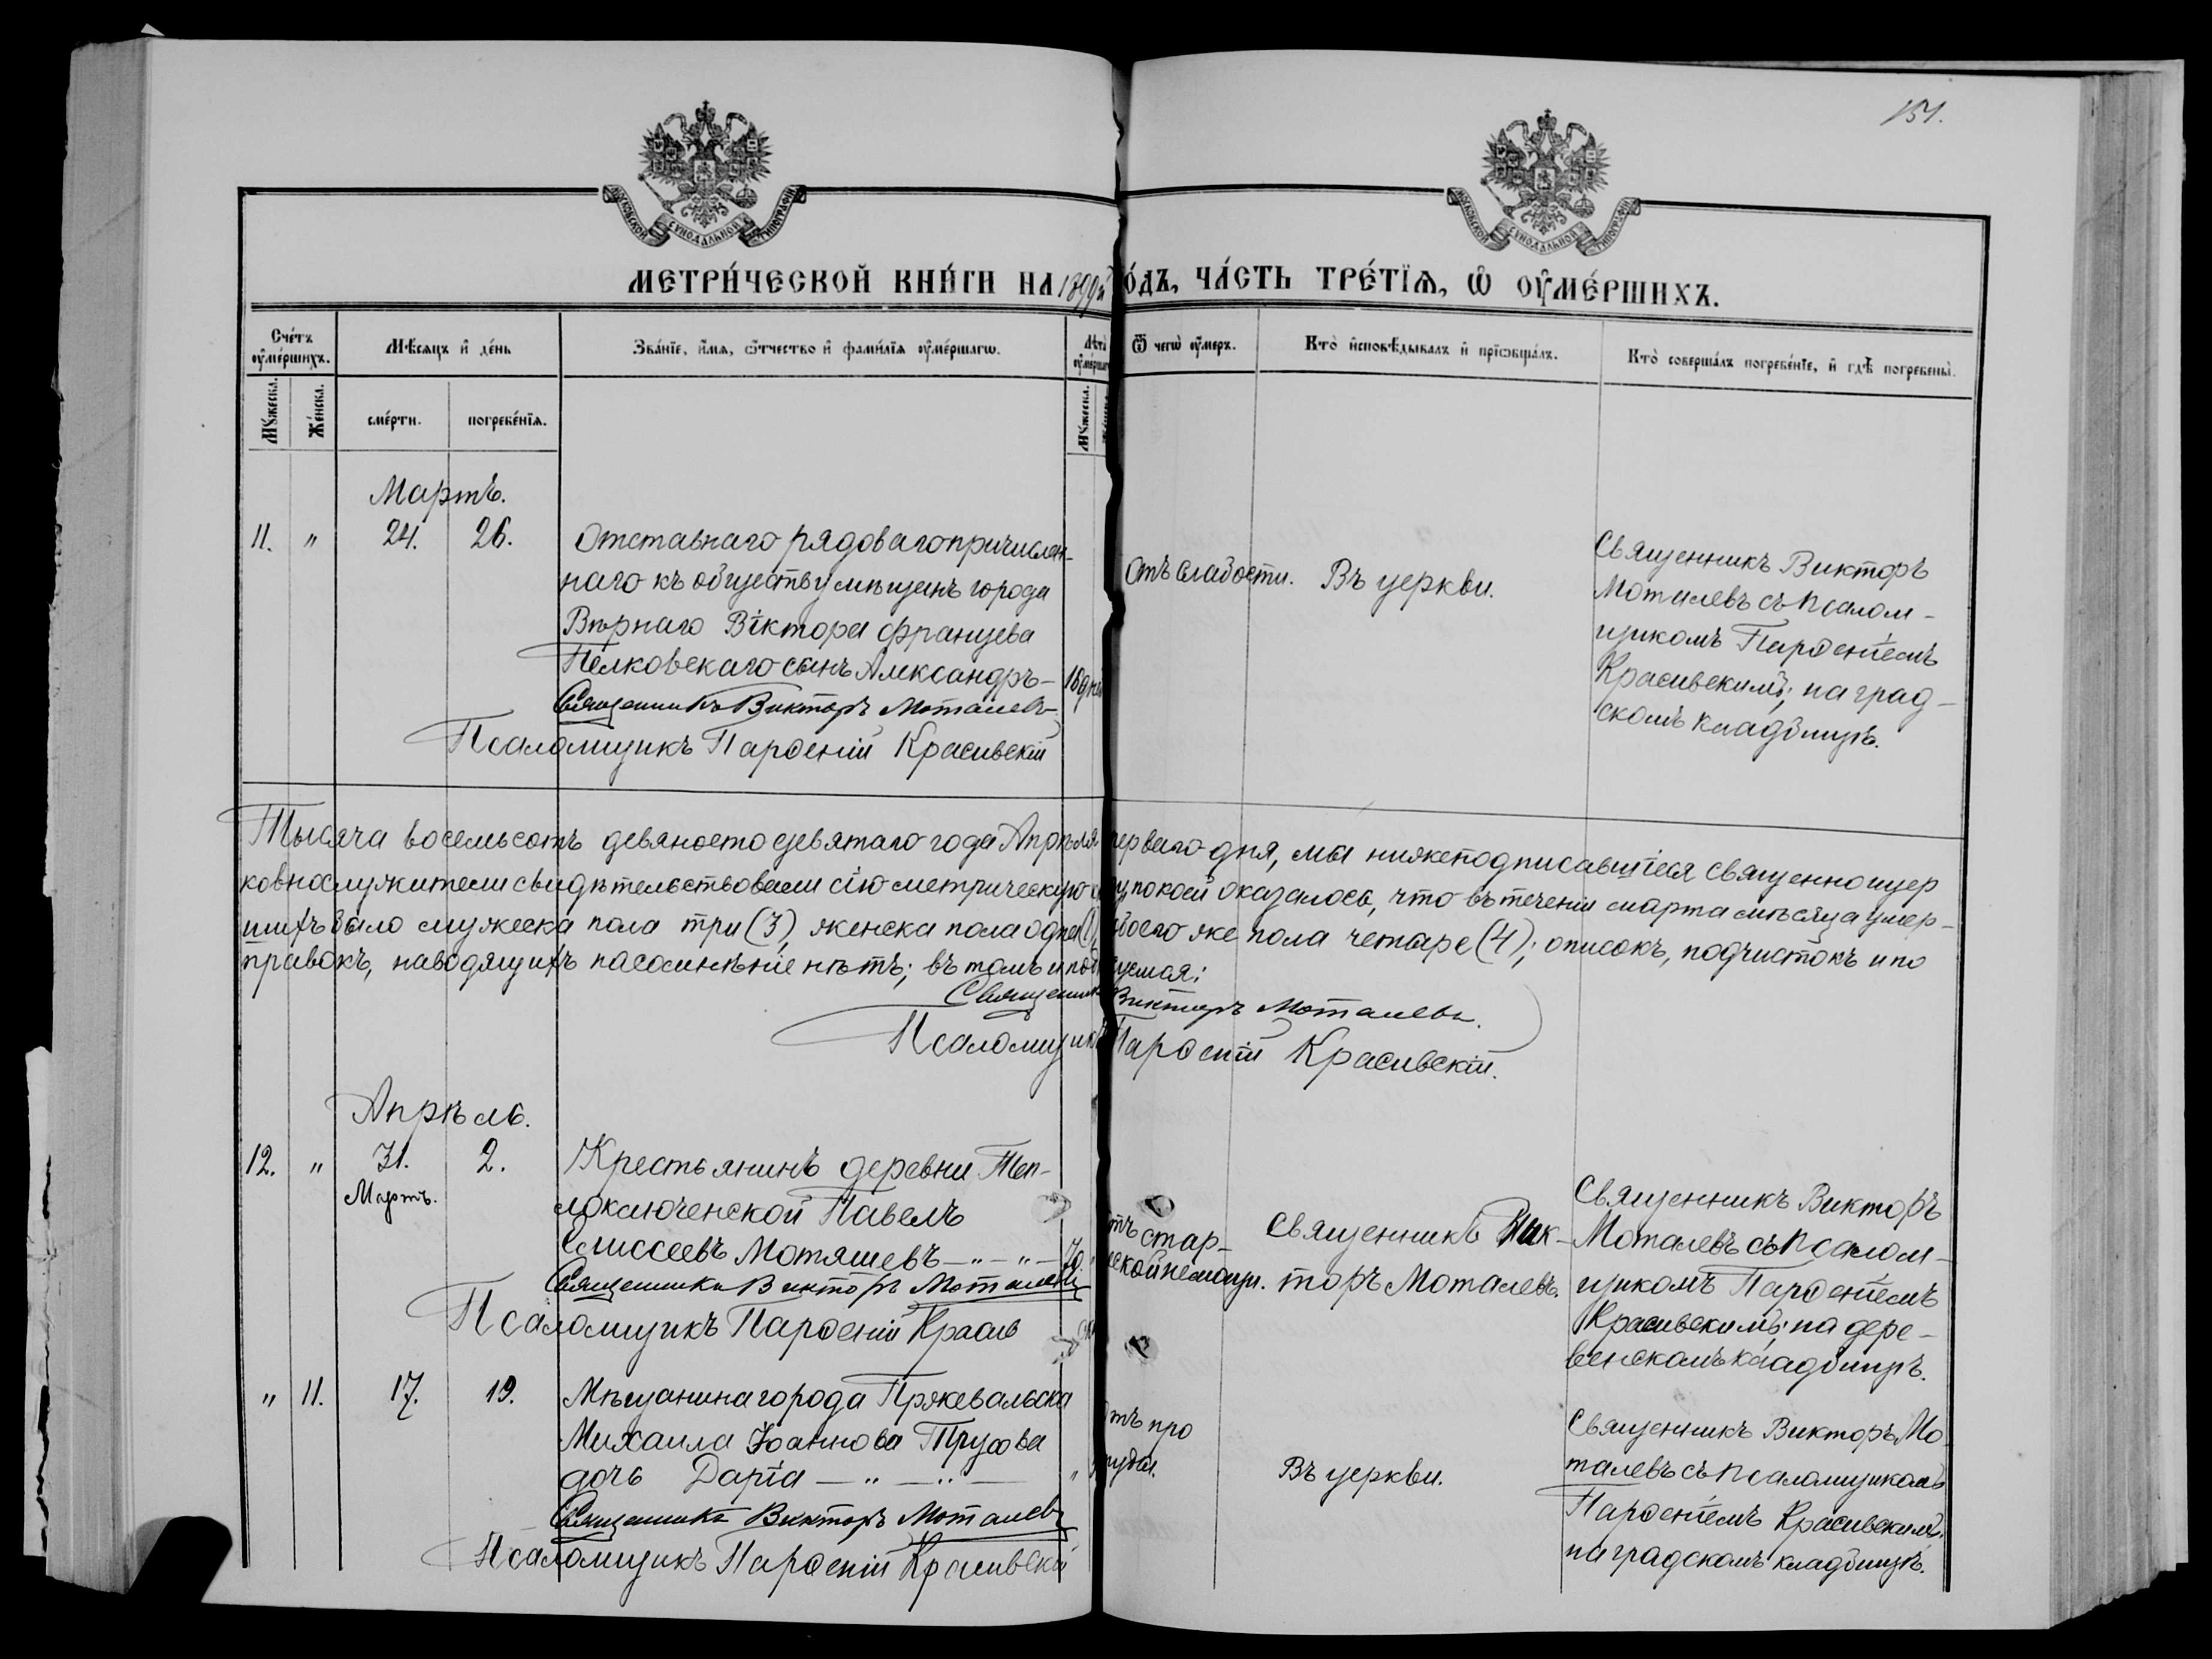 151.
МОСКОВСКОЙ СѴНОДАЛЬНОЙ ТИПОГРАФІИ
МОСКОВСКОЙ СѴНОДАЛЬНОЙ ТИПОГРАФІИ
МЕТРИ́ЧЕСКОЙ КНИ́ГИ НА 1899й
О́ДЪ, ЧА́СТЬ ТРЕ́ТЇѦ, Ѡ҆ ОУ҆МЕ́РШИХЪ.
Сче́тъ
оу҆ме́ршихъ.
Мѣ́сяцъ и҆ де́нь
Зва́нїе, и҆́мѧ, ѻ҆́тчество и҆ фами́лїѧ оу҆ме́ршагѡ.
Лѣта̀
Ѿ чегѡ̀ оу҆́меръ.
Кто̀ и҆сповѣ́дывалъ и҆ прїѡбща́лъ.
Кто̀ соверша́лъ погребе́нїе, и҆ гдѣ̀ погребены̀.
Мꙋ́жеска.
Же́нска.
сме́рти.
погребе́нїѧ.
Мꙋ́жеска.
Мартъ.
11. " 24. 26.
Отставнаго рядоваго причислен-
наго къ обществу мѣщанъ города
Вѣрнаго Віктора Францева
Пелковскаго сынъ Александръ-
Священникъ Викторъ Моталевъ
Псаломщикъ Парѳеній Красивскій
отъ слабости.
Въ церкви.
Священникъ Викторъ
Моталевъ съ псалом-
щикомъ Парѳеніемъ
Красивскимъ; на град-
скомъ кладбищѣ.
Тысяча восемьсотъ девяносто девятаго года Апрѣля перваго дня, мы нижеподписавшіеся священноцер
ковнослужители свидѣтельствовали сію метрическую по коей оказалось, что въ теченіи марта мѣсяца умер-
шихъ было мужеска пола три (3), женска пола одна (1), обоего же пола четыре (4); описокъ, подчистокъ и по
правокъ, наводящихъ на сомнѣніе нѣтъ; въ томъ и
Священникъ Викторъ Моталевъ.
Псаломщикъ Парѳеній Красивскій.
Апрѣль.
12. " 31. 2.
Мартъ.
Крестьянинъ деревни Теп-
лоключенской Павелъ
Елиссеевъ Мотяшевъ-"-"- 70.
Священникъ Викторъ Моталевъ
Псаломщикъ Парѳеній Красив
отъ стар-
ческой немощи.
Священникъ Вик-
торъ Моталевъ.
Священникъ Викторъ
Моталевъ съ псалом-
щикомъ Парѳеніемъ
Красивскимъ; на дере-
венскомъ кладбищѣ.
" 11. 17. 19.
Мѣщанина города Пржевальска
Михаила Іоаннова Трусова
дочь Дарія -"-"-
Священникъ Викторъ Моталевъ
Псаломщикъ Парѳеній Красивскій
отъ про
студы.
Въ церкви.
Священникъ Викторъ Мо-
талевъ съ псаломщикомъ
Парѳеніемъ Красивскимъ;
на градскомъ кладбищѣ.